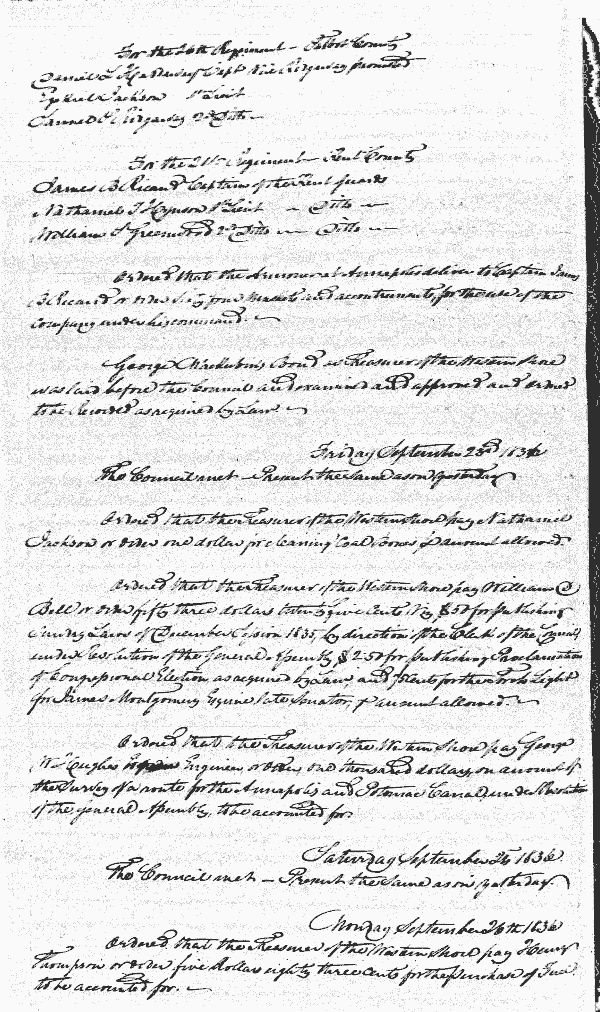 For the 26th Regiment — Talbot County
Daniel L Haddaway Capt Vice Ridgaway promoted
Ezekiel Jackson 1st Lieut
Ridgaway 2d Ditto —
For the 21st Regiment — Kent County
James B Ricaud Captain of the Kent Guards
Nathaniel T Hynson 1st Lieut — Ditto —
William S Greenwood 2d Ditto — Ditto —
Ordered that the Armourer at Annapolis deliver to Captain James
B Ricaud or order four muskets and acoutrements, for the use of the
company under his command. —
George Mackubin's Bond as Treasurer of the Western Shore
was laid before the Council and examined and approved and ordered
to be Recorded as required by Law —
Friday September 23d 1836
The Council met — Present the same as on yesterday
Ordered that the Treasurer of the Western Shore pay Nathaniel
Jackson or order one dollar for cleaning Coal Stoves pr account allowed.
Ordered that the Treasurer of the Western Shore pay William
Bell or order fifty three dollars twenty five Cents Viz $50 for publishing
Sunday Laws of December Session 1835, by direction of the Clerk of the Council
under Resolution of the General Assembly, $2.50 for publishing Proclamation
of Congressional Election as required by Law, and for the
for James Montgomery Esquire late Senator, pr account allowed. —
Ordered that the Treasurer of the Western Shore pay George
W. Hughes Engineer or order, one thousand dollars, on account of
the survey of a route for the Annapolis and Potomac Canal, under Resolution
of the general Assembly, to be accounted for.
Saturday September 24 1836
The Council met — Present the same as on yesterday.
Monday September 26th 1836
Ordered that the Treasurer of the Western Shore pay Henry
Thompson or order five dollars eighty three cents for the purchase of Fuel
to be accounted for. —